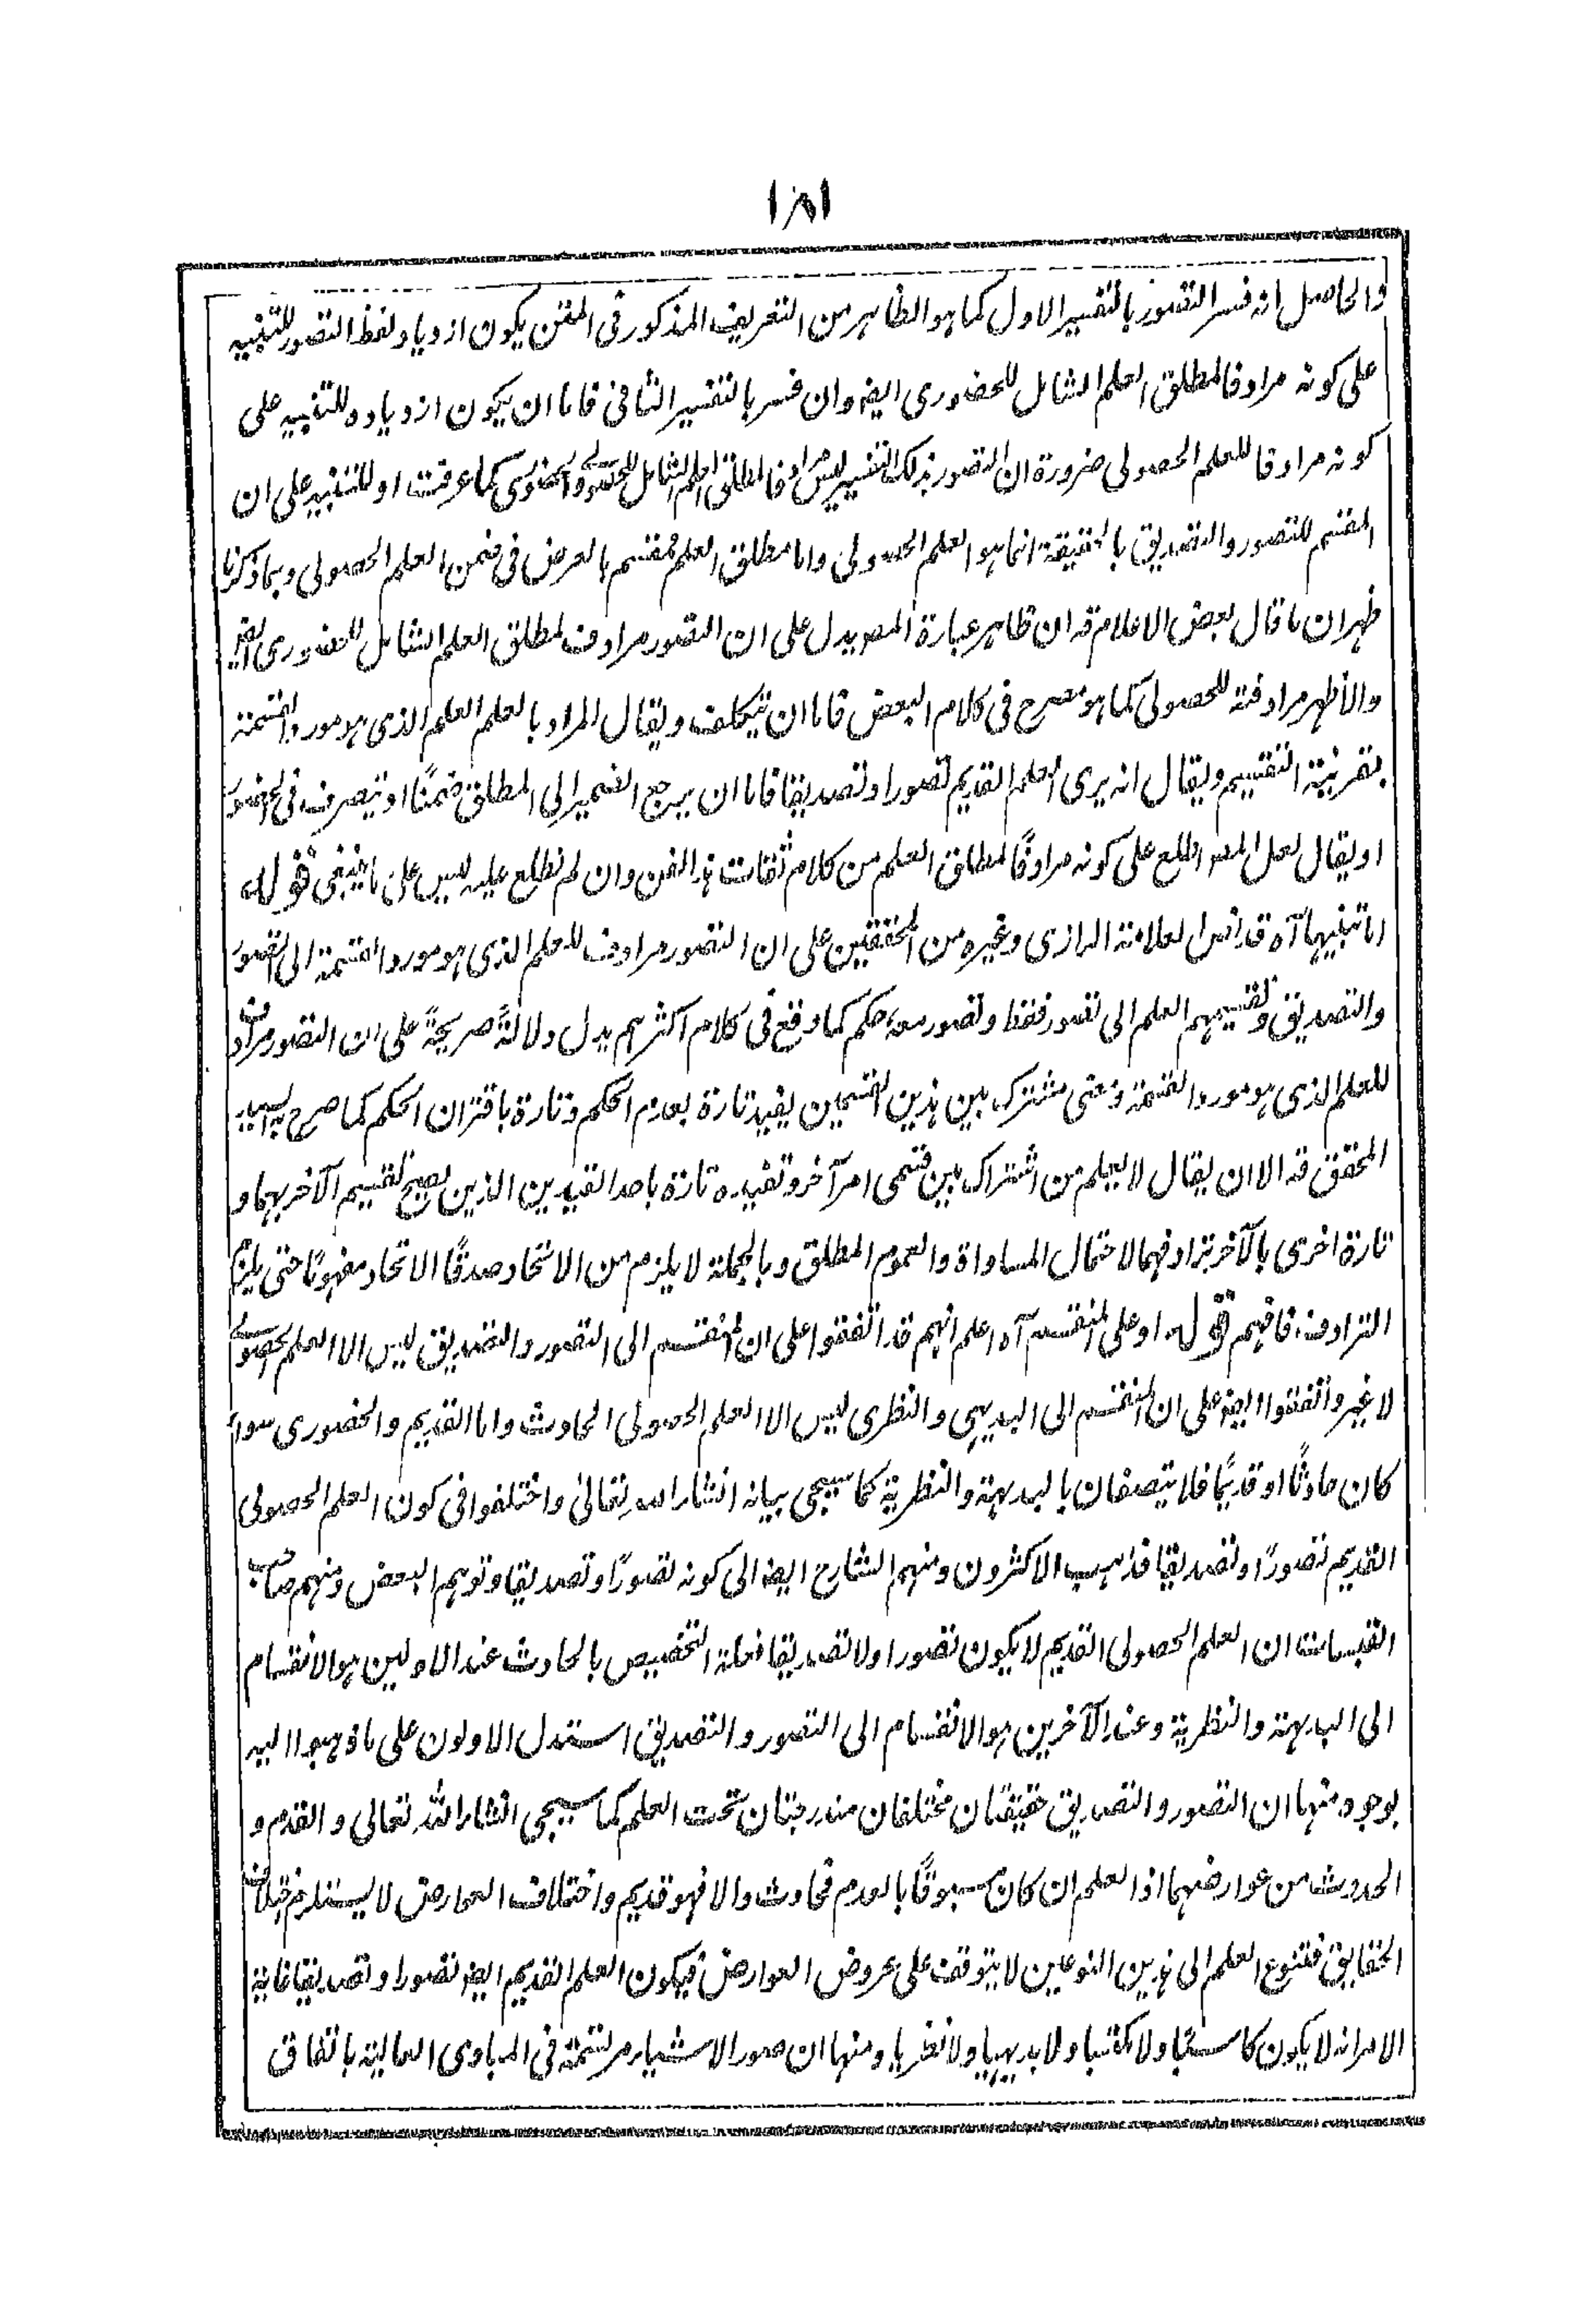 ١٨١
والحاصل انه فسر التصور بالتفسير الاول كما هو الظاهر من التعريف المذكور فى المتن يكون ازدياد لفظ التصور للتنبيه
على كونه مرادفا لمطلق العلم الشامل للحضورى ايضا وان فسر بالتفسير الثانى فاما ان يكون ازدياده للتنبيه على
كونه مرادفا للعلم الحصولى ضرورة ان التصور بذلك التفسير ليس مرادفا لمطلق العلم الشامل للحصولى والحضورى كما عرفت او للتنبيه على ان
المقسم للتصور والتصديق بالحقيقة انما هو العلم الحصولى واما مطلق العلم فمقسم بالعرض فى ضمن العلم الحصولى وبما ذكرنا
ظهر ان ما قال بعض الاعلام قه ان ظاهر عبارة المصـ يدل على ان التصور مرادف لمطلق العلم الشامل للحضورى ايضا
والاظهر مرادفته للحصولى كما هو مصرح فى كلام البعض فاما ان يتكلف ويقال المراد بالعلم العلم الذى هو مورد القسمة
بقرينة التقسيم ويقال انه يرى العلم القديم تصورا وتصديقا فاما ان يرجع الضمير الى المطلق ضمنًا او يتصرف فى الحضور
او يقال لعل المصـ اطلع على كونه مرادفًا لمطلق العلم من كلام ثقات هذا الفن وان لم نطلع عليه ليس على ما ينبغى قوله
اما تنبيهًا آه قد نص العلامة الرازى وغيره من المحققين على ان التصور مرادف للعلم الذى هو مورد القسمة الى التصور
والتصديق وتقسيمهم العلم الى تصور فقط وتصور معه حكم كما وقع فى كلام اكثرهم يدل دلالةً صريحةً على ان التصور مرادف
للعلم الذى هو مورد القسمة ومعنى مشترك بين هذين القسمين يقيد تارة بعدم الحكم وتارة باقتران الحكم كما صرح به السيد
المحقق قه الا ان يقال لا يعلم من اشتراك بين قسمى امر آخر وتقييده تارة باحد القيدين الذين يصح تقسيم الآخر بهما و
تارة اخرى بالآخر ترادفهما لاحتمال المساواة والعموم المطلق وبالجملة لا يلزم من الاتحاد صدقًا الاتحاد مفهومًا حتى يلزم
الترادف فافهم قوله او على المنقسم آه اعلم انهم قد اتفقوا على ان المنقسم الى التصور والتصديق ليس الا العلم الحصولى
لا غير واتفقوا ايضا على ان المنقسم الى البديهى والنظرى ليس الا العلم الحصولى الحادث واما القديم والحضورى سواء
كان حادثًا او قديمًا فلا يتصفان بالبديهة والنظرية كما سيجئ بيانه انشاء الله تعالى واختلفوا فى كون العلم الحصولى
القديم تصورًا وتصديقا فذهب الاكثرون ومنهم الشارح ايضا الى كونه تصورًا وتصديقا وتوهم البعض ومنهم صاحب
القبسات ان العلم الحصولى القديم لا يكون تصورا ولا تصديقا فعلة التخصيص بالحادث عند الاولين هو الانقسام
الى البديهة والنظرية وعند الآخرين هو الانقسام الى التصور والتصديق استدل الاولون على ما ذهبوا اليه
بوجوه منها ان التصور والتصديق حقيقتان مختلفان مندرجتان تحت العلم كما سيجئ انشاء الله تعالى والقدم و
الحدوث من عوارضهما اذ العلم ان كان مسبوقًا بالعدم فحادث والا فهو قديم واختلاف العوارض لا يستلزم اختلاف
الحقايق فتنوع العلم الى هذين النوعين لا يتوقف على عروض العوارض فيكون العلم القديم ايضا تصورا وتصديقا غاية
الامر انه لا يكون كاسبا ولا مكتسبا ولا بديهيا ولا نظريا ومنها ان صور الاشياء مرتسمة فى المبادى العالية باتفاق